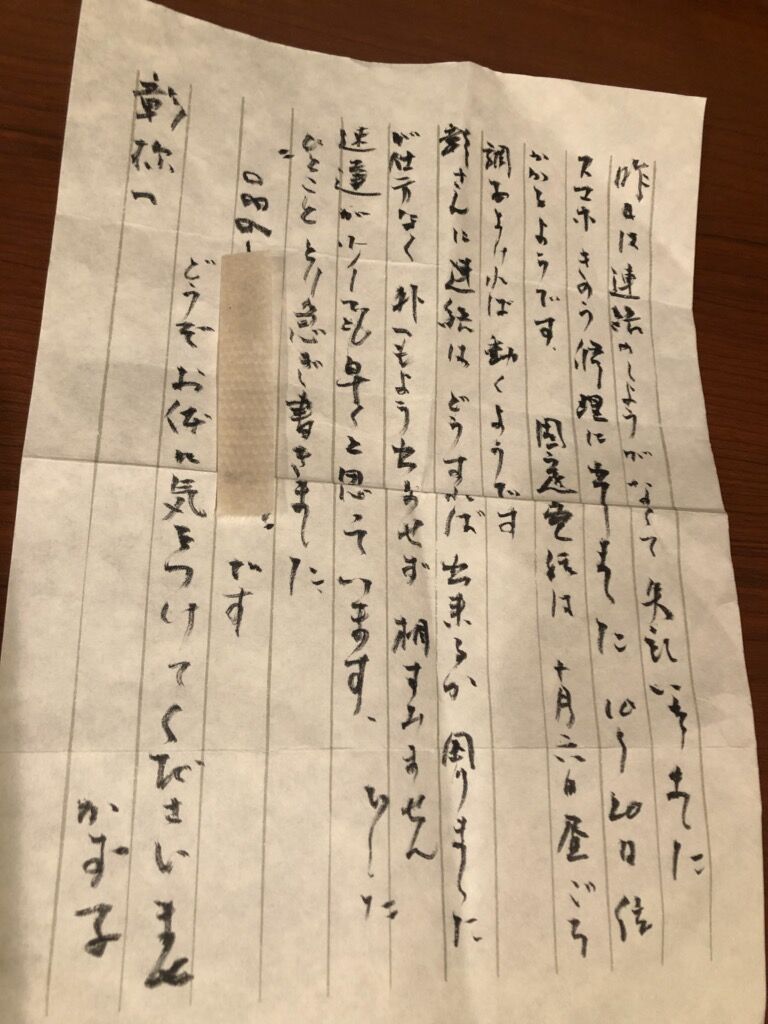 昨日は連絡のしようがなくて失礼いたしました
スマホきのう修理に出しました 10〜20日位
かかるようです、 固定電話は十月六日昼ごろ
調子よければ動くようです
彰さんに連絡はどうすれば出来るか困りました
が仕方なく 外へもよう出ませず 相すみません
でした
速達が少しでも早くと思っています、
ひとこととり急ぎ書きました
"080-
"です
どうぞお体に気をつけてくださいませ
かず子
彰称へ